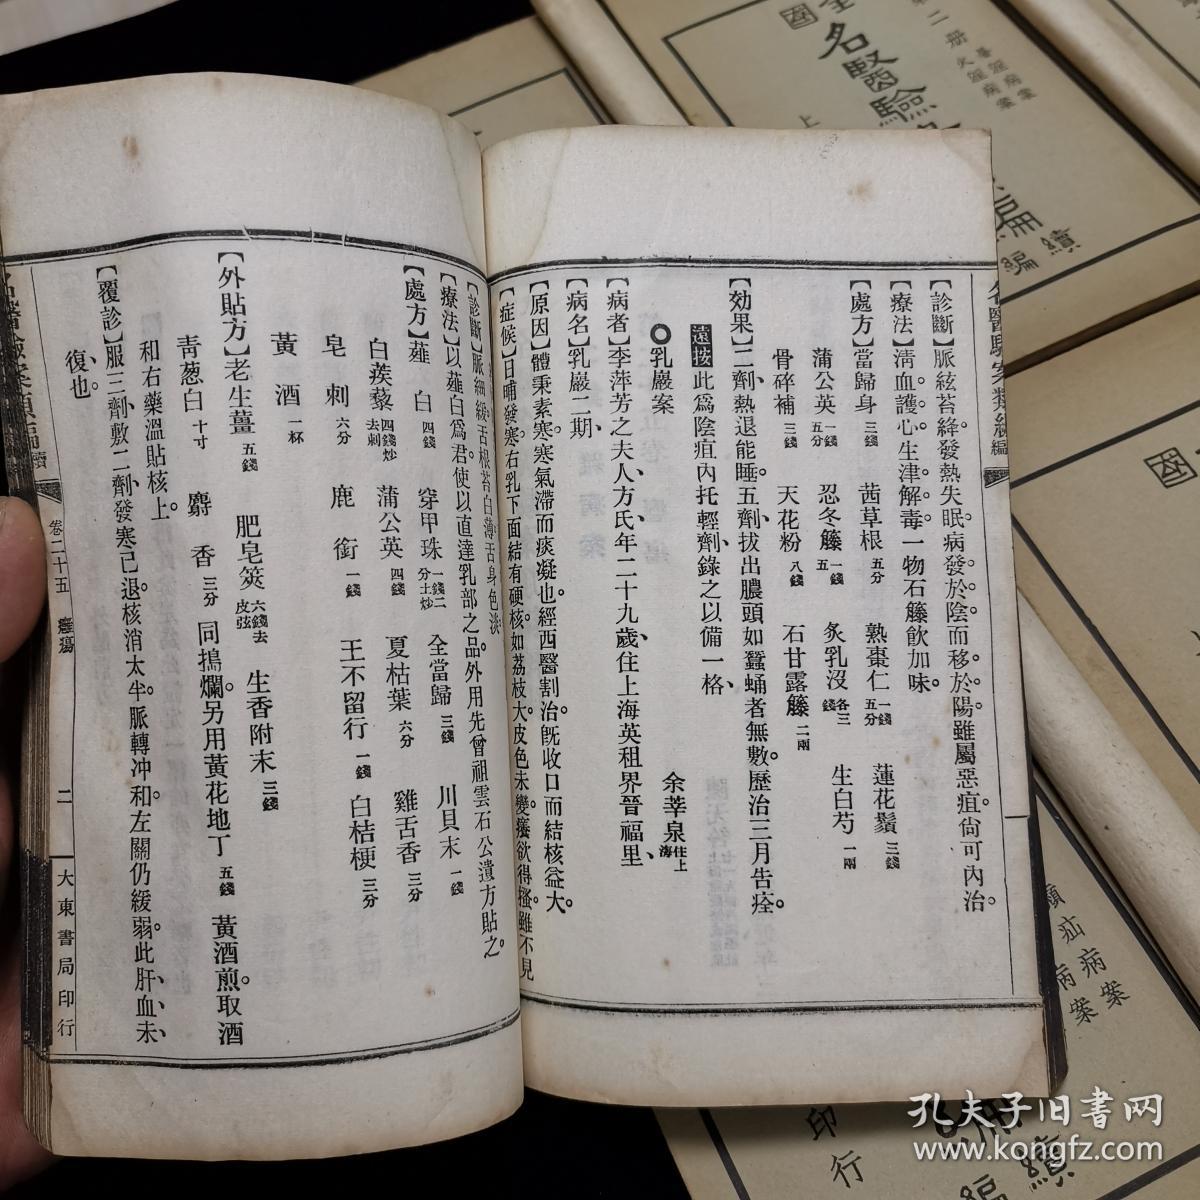 名醫驗案類編
【診斷】脈絃苔絳發熱失眠病發於陰而移於陽雖屬惡疽尙可內治。
【療法】淸血護心生津解毒一物石籐飮加味。
【處方】當歸身三錢 茜草根五分 熟棗仁一錢五分 蓮花鬚三錢
蒲公英一錢五分 忍冬籐一錢五 炙乳沒各三錢 生白芍一兩
骨碎補三錢 天花粉八錢 石甘露籐二兩
【効果】二劑熱退能睡五劑拔出膿頭如蠶蛹者無數歷治三月告痊。
遠按 此爲陰疽內托輕劑錄之以備一格
乳巖案 余莘泉住上海
【病者】李萍芳之夫人方氏年二十九歲住上海英租界晉福里、
【病名】乳巖二期、
【原因】體秉素寒寒氣滯而痰凝也經西醫割治。旣收口而結核益大。
【症候】日晡發寒右乳下面結有硬核如荔枝大皮色未變癢欲得搔。雖不見
【診斷】脈細緩舌根苔白薄舌身色淡
【療法】以薤白爲君使以直達乳部之品。外用先曾祖雲石公遺方貼之。
【處方】薤白四錢 穿甲珠一錢二分土炒 全當歸三錢 川貝末一錢
白蒺藜四錢炒去刺 蒲公英四錢 夏枯葉六分 雞舌香三分
皂刺六分 鹿銜一錢 王不留行一錢 白桔梗三分
黃酒一杯
【外貼方】老生薑五錢 肥皂筴六錢去皮弦 生香附末三錢
靑葱白十寸 麝香三分 同搗爛。另用黃花地丁五錢 黃酒煎。取酒
和右藥溫貼核上。
【覆診】服三劑敷二劑發寒已退。核消太半。脈轉冲和。左關仍緩弱。此肝血未
復也。
卷二十五 癰瘍
二
大東書局印行
名醫驗
編
續編
第二冊
上
印行
孔夫子旧書网
www.kongfz.com